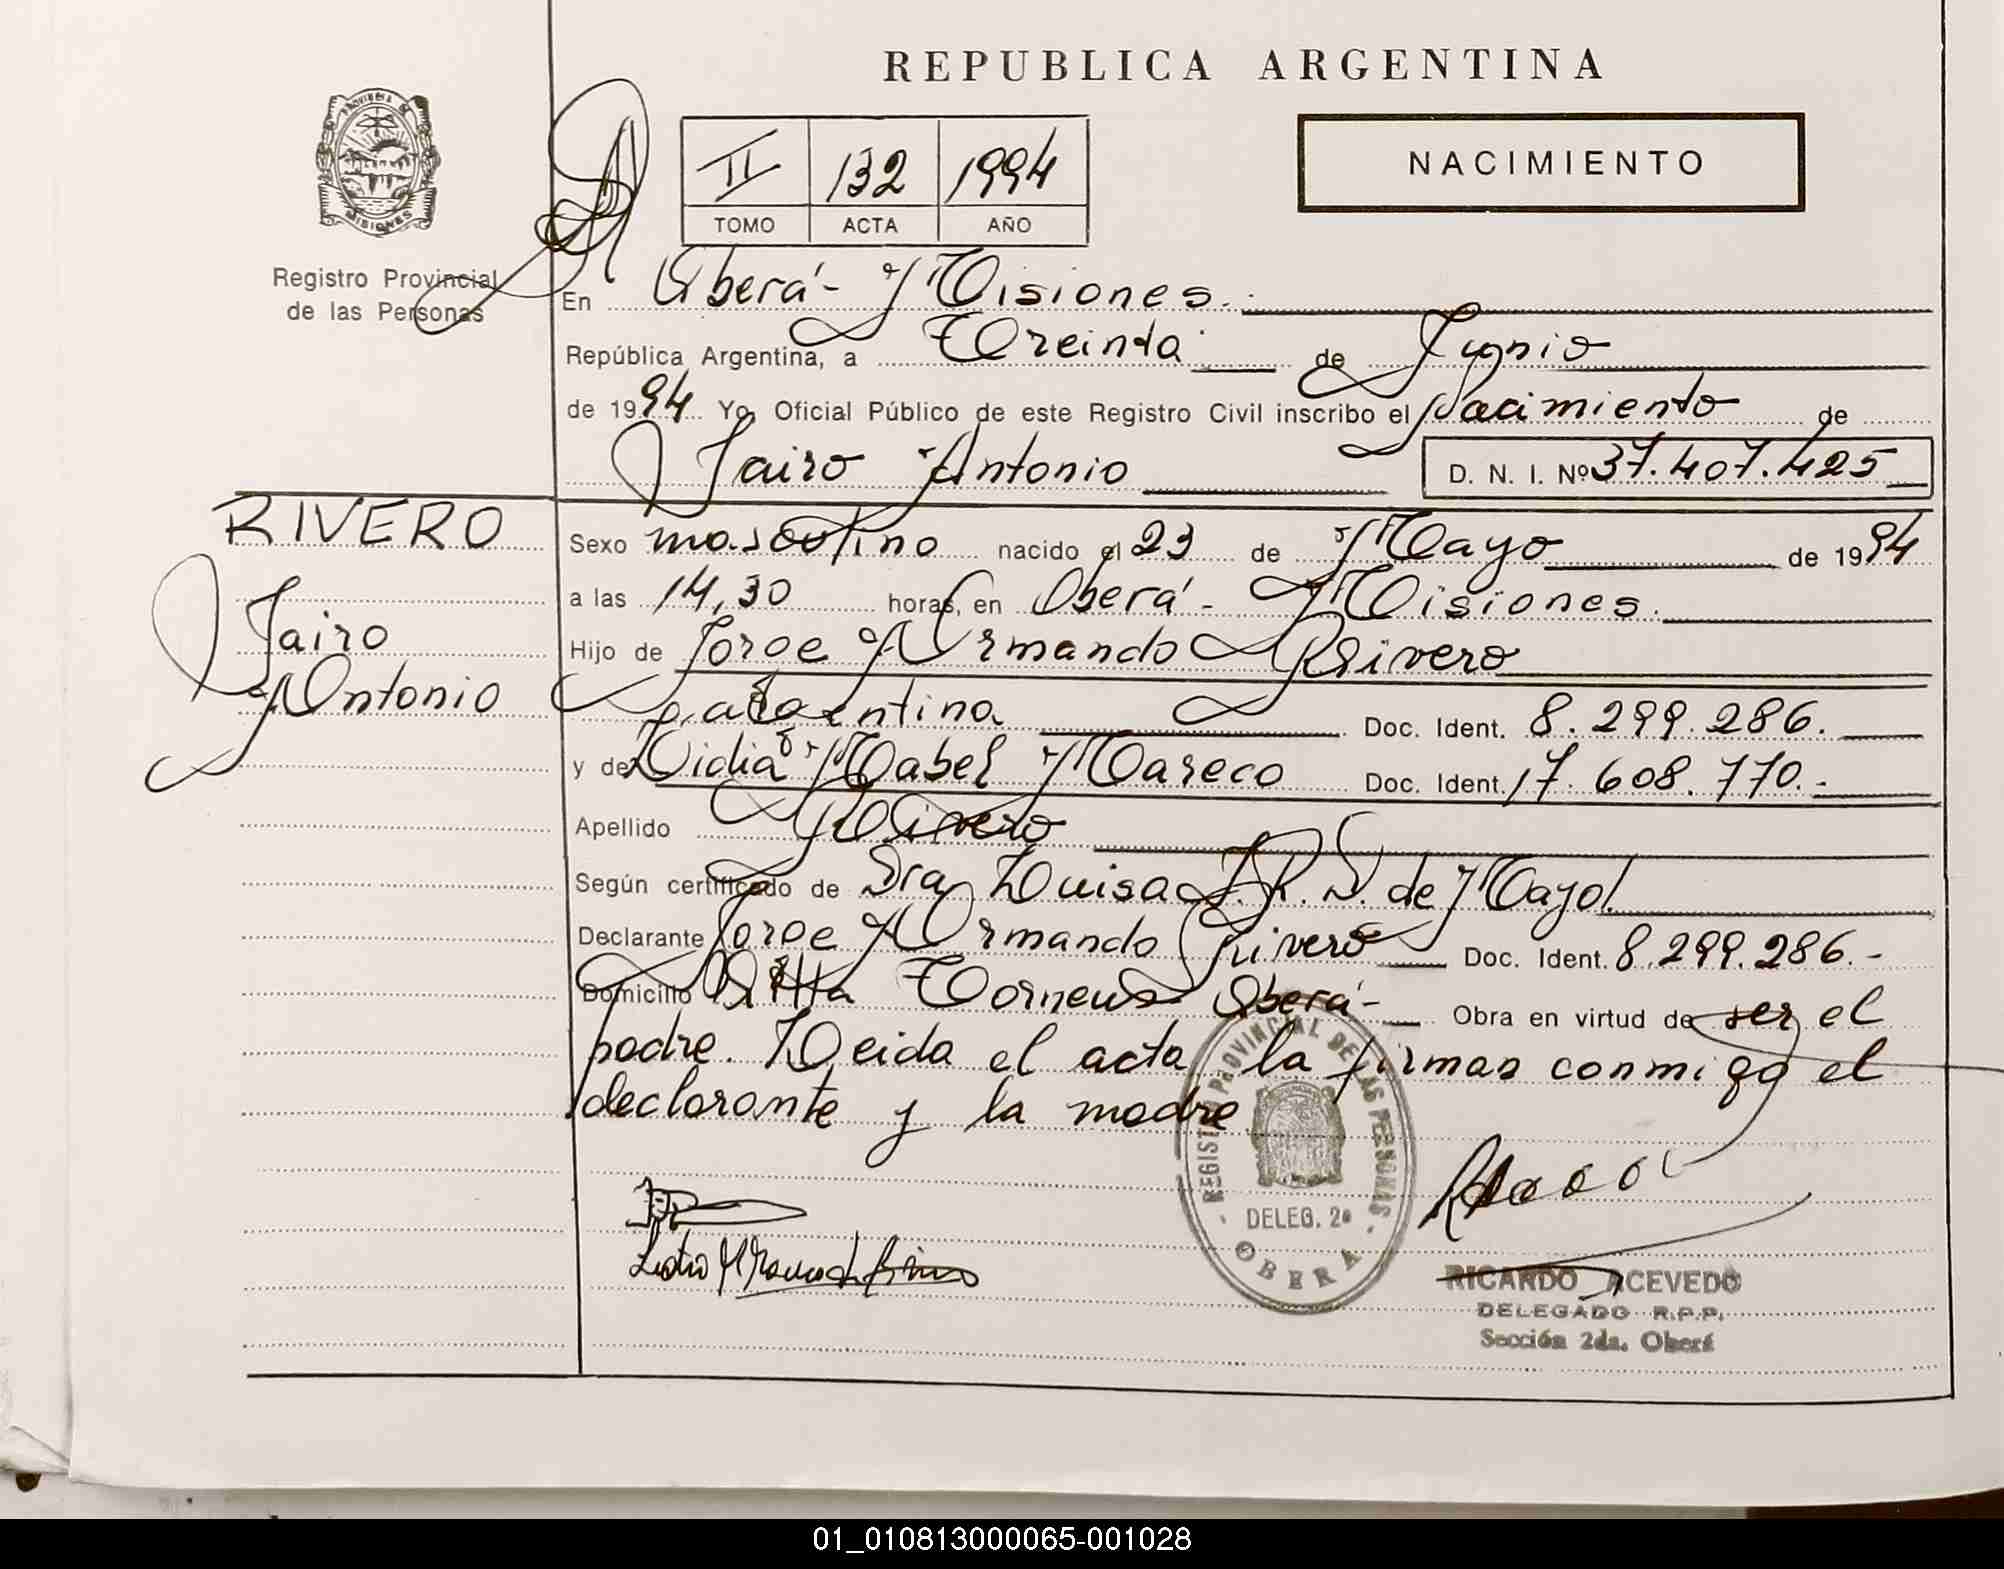 REPUBLICA ARGENTINA
PROVINCIA DE MISIONES
Registro Provincial
de las Personas
II 132 1994
TOMO ACTA AÑO
NACIMIENTO
En Oberá - Misiones.
República Argentina, a Treinta de Junio
de 1994 Yo Oficial Público de este Registro Civil inscribo el Nacimiento de
Jairo Antonio D. N. I. Nº 37.407.425
RIVERO
Jairo
Antonio
Sexo masculino nacido el 23 de Mayo de 1994
a las 14,30 horas, en Oberá - Misiones.
Hijo de Jorge Armando Rivero
argentina Doc. Ident. 8.299.286.
y de Lidia Mabel Mareco Doc. Ident. 17.608.770.-
Apellido Rivero
Según certificado de Dra Luisa J.R.S. de Mayol.
Declarante Jorge Armando Rivero Doc. Ident. 8.299.286.-
Domicilio Villa Oberá- Obra en virtud de ser el
padre. Leida el acta la firman conmigo el
declarante y la madre
REGISTRO PROVINCIAL DE LAS PERSONAS
DELEG. 2ª
OBERA
RICARDO ACEVEDO
DELEGADO R.P.P.
Sección 2da. Oberá
01_010813000065-001028